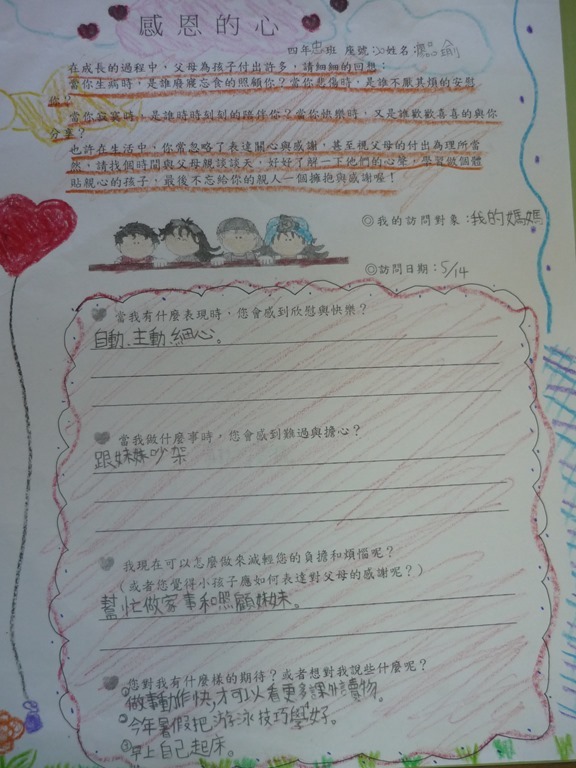 感恩的心
四年忠班 座號 姓名
在成長的過程中，父母為孩子付出許多，請細細的回想：
當你生病時，是誰廢寢忘食的照顧你？當你悲傷時，是誰不厭其煩的安慰
你？
當你寂寞時，是誰時時刻刻的陪伴你？當你快樂時，又是誰歡歡喜喜的與你
分享？
也許在生活中，你常忽略了表達關心與感謝，甚至視父母的付出為理所當
然，請找個時間與父母親談談天，好好了解一下他們的心聲，學習做個體
貼親心的孩子，最後不忘給你的親人一個擁抱與感謝喔！
◎我的訪問對象：我的媽媽
◎訪問日期：5/14
當我有什麼表現時，您會感到欣慰與快樂？
自動、主動、細心。
當我做什麼事時，您會感到難過與擔心？
跟妹妹吵架
我現在可以怎麼做來減輕您的負擔和煩惱呢？
（或者您覺得小孩子應如何表達對父母的感謝呢？）
幫忙做家事和照顧妹妹。
您對我有什麼樣的期待？或者想對我說些什麼呢？
①做事動作快，才可以看更多課外讀物。
②今年暑假把游泳技巧學好。
③早上自己起床。